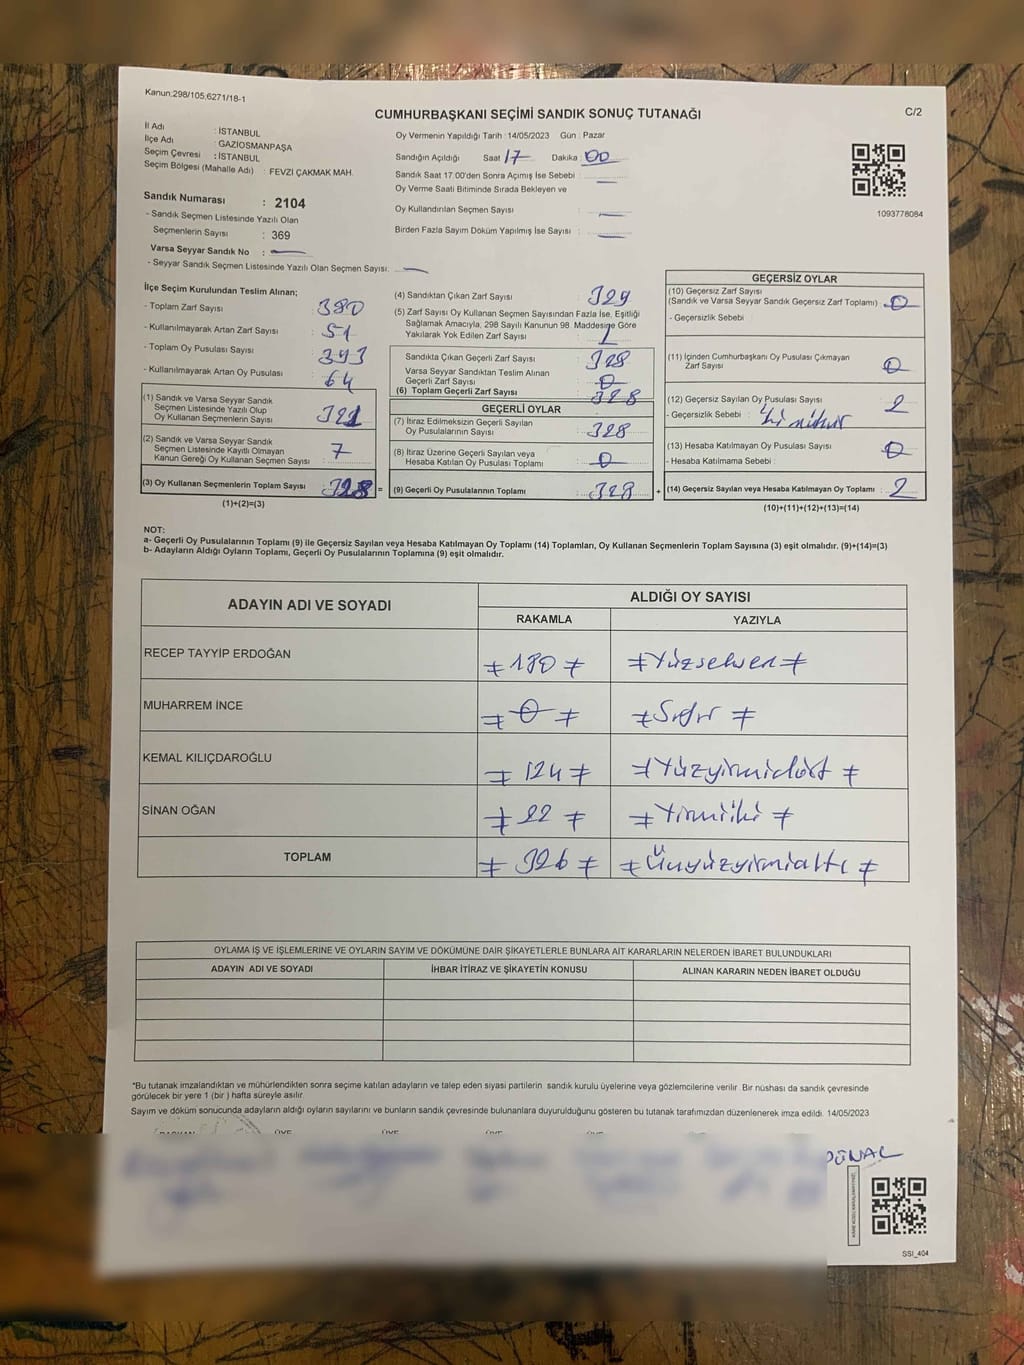 Kanun:298/105,6271/18-1
CUMHURBAŞKANI SEÇİMİ SANDIK SONUÇ TUTANAĞI
C/2
İl Adı : İSTANBUL
İlçe Adı : GAZİOSMANPAŞA
Seçim Çevresi : İSTANBUL
Seçim Bölgesi (Mahalle Adı) : FEVZİ ÇAKMAK MAH.
Sandık Numarası : 2104
- Sandık Seçmen Listesinde Yazılı Olan
Seçmenlerin Sayısı : 369
Varsa Seyyar Sandık No :
- Seyyar Sandık Seçmen Listesinde Yazılı Olan Seçmen Sayısı:
Oy Vermenin Yapıldığı Tarih : 14/05/2023 Gün : Pazar
Sandığın Açıldığı Saat 17 Dakika : 00
Sandık Saat 17.00'den Sonra Açımış İse Sebebi :
Oy Verme Saati Bitiminde Sırada Bekleyen ve
Oy Kullandırılan Seçmen Sayısı :
Birden Fazla Sayım Döküm Yapılmış İse Sayısı :
1093778084
İlçe Seçim Kurulundan Teslim Alınan;
- Toplam Zarf Sayısı : 380
- Kullanılmayarak Artan Zarf Sayısı : 51
- Toplam Oy Pusulası Sayısı : 393
- Kullanılmayarak Artan Oy Pusulası : 64
(1) Sandık ve Varsa Seyyar Sandık
Seçmen Listesinde Yazılı Olup
Oy Kullanan Seçmenlerin Sayısı : 321
(2) Sandık ve Varsa Seyyar Sandık
Seçmen Listesinde Kayıtlı Olmayan
Kanun Gereği Oy Kullanan Seçmen Sayısı : 7
(3) Oy Kullanan Seçmenlerin Toplam Sayısı : 328 =
(1)+(2)=(3)
(4) Sandıktan Çıkan Zarf Sayısı : 329
(5) Zarf Sayısı Oy Kullanan Seçmen Sayısından Fazla İse, Eşitliği
Sağlamak Amacıyla, 298 Sayılı Kanunun 98. Maddesine Göre
Yakılarak Yok Edilen Zarf Sayısı : 1
Sandıkta Çıkan Geçerli Zarf Sayısı : 328
Varsa Seyyar Sandıktan Teslim Alınan
Geçerli Zarf Sayısı : 0
(6) Toplam Geçerli Zarf Sayısı : 328
GEÇERLİ OYLAR
(7) İtiraz Edilmeksizin Geçerli Sayılan
Oy Pusulalarının Sayısı : 328
(8) İtiraz Üzerine Geçerli Sayılan veya
Hesaba Katılan Oy Pusulası Toplamı : 0
(9) Geçerli Oy Pusulalarının Toplamı : 328 +
GEÇERSİZ OYLAR
(10) Geçersiz Zarf Sayısı
(Sandık ve Varsa Seyyar Sandık Geçersiz Zarf Toplamı) : 0
- Geçersizlik Sebebi :
(11) İçinden Cumhurbaşkanı Oy Pusulası Çıkmayan
Zarf Sayısı : 0
(12) Geçersiz Sayılan Oy Pusulası Sayısı : 2
- Geçersizlik Sebebi :
(13) Hesaba Katılmayan Oy Pusulası Sayısı : 0
- Hesaba Katılmama Sebebi :
(14) Geçersiz Sayılan veya Hesaba Katılmayan Oy Toplamı : 2
(10)+(11)+(12)+(13)=(14)
NOT:
a- Geçerli Oy Pusulalarının Toplamı (9) ile Geçersiz Sayılan veya Hesaba Katılmayan Oy Toplamı (14) Toplamları, Oy Kullanan Seçmenlerin Toplam Sayısına (3) eşit olmalıdır. (9)+(14)=(3)
b- Adayların Aldığı Oyların Toplamı, Geçerli Oy Pusulalarının Toplamına (9) eşit olmalıdır.
ADAYIN ADI VE SOYADI
ALDIĞI OY SAYISI
RAKAMLA YAZIYLA
RECEP TAYYİP ERDOĞAN ≠ 180 ≠ ≠Yüzseksen≠
MUHARREM İNCE ≠ 0 ≠ ≠Sıfır ≠
KEMAL KILIÇDAROĞLU ≠ 124 ≠ ≠Yüzyirmidört ≠
SİNAN OĞAN ≠ 22 ≠ ≠ Yirmiiki ≠
TOPLAM ≠ 326 ≠ ≠ Üçyüzyirmialtı ≠
OYLAMA İŞ VE İŞLEMLERİNE VE OYLARIN SAYIM VE DÖKÜMÜNE DAİR ŞİKAYETLERLE BUNLARA AİT KARARLARIN NELERDEN İBARET BULUNDUKLARI
ADAYIN ADI VE SOYADI İHBAR İTİRAZ VE ŞİKAYETİN KONUSU ALINAN KARARIN NEDEN İBARET OLDUĞU
*Bu tutanak imzalandıktan ve mühürlendikten sonra seçime katılan adayların ve talep eden siyasi partilerin sandık kurulu üyelerine veya gözlemcilerine verilir. Bir nüshası da sandık çevresinde
görülecek bir yere 1 (bir ) hafta süreyle asılır.
Sayım ve döküm sonucunda adayların aldığı oyların sayılarını ve bunların sandık çevresinde bulunanlara duyurulduğunu gösteren bu tutanak tarafımızdan düzenlenerek imza edildi. 14/05/2023
SSI_404